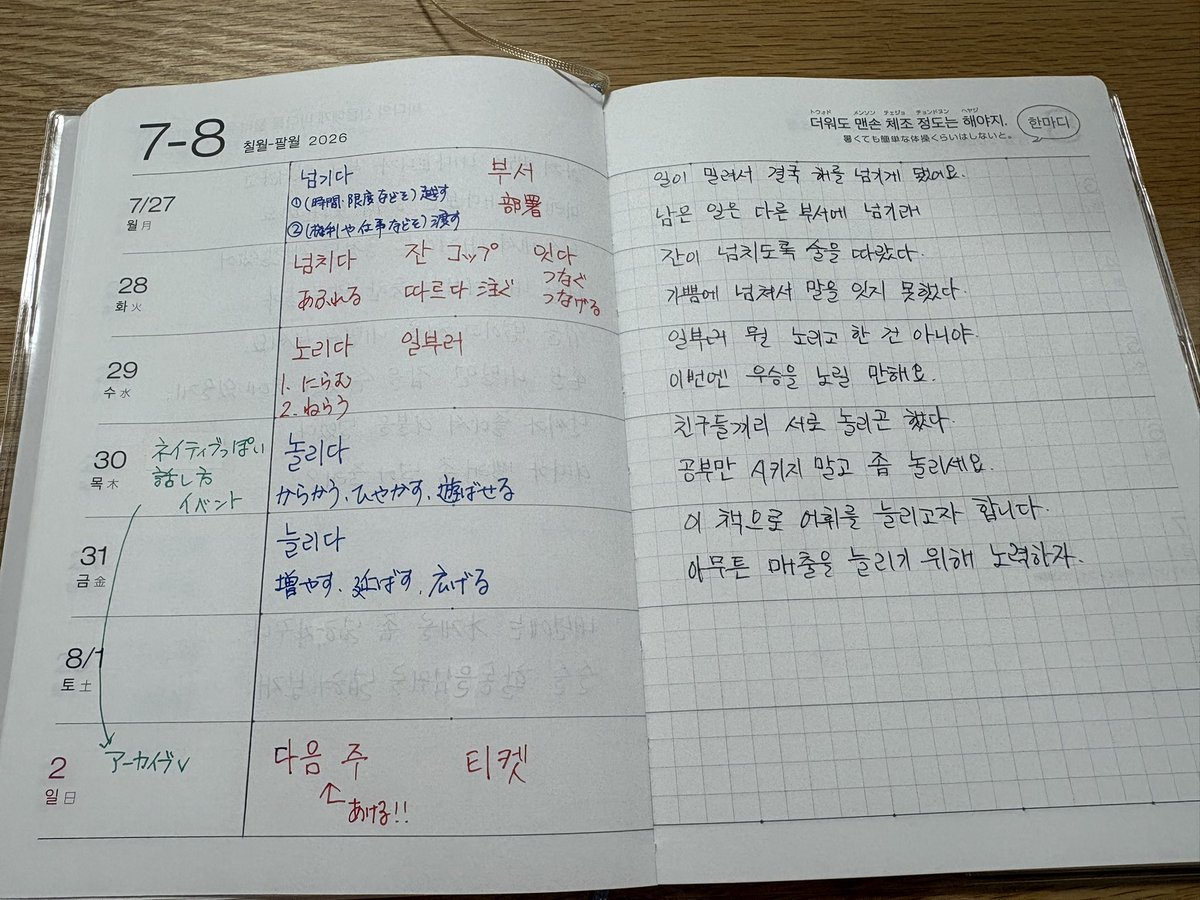 7-8 칠월-팔월 2026
7/27
월 月
넘기다 부서
①(時間・限度などを)越す 部署
②(権利や仕事などを)渡す
28
화 火
넘치다 잔 コップ 잇다
あふれる 따르다 注ぐ つなぐ
つなげる
29
수 水
노리다 일부러
1. にらむ
2. ねらう
30
목 木
ネイティブっぽい
話し方
イベント
놀리다
からかう、ひやかす、遊ばせる
31
금 金
늘리다
増やす、延ばす、広げる
8/1
토 土
2
일 日
アーカイブ✓
다음 주 티켓
あける!!
トウォド メンソン チェジョ チョンドヌン ヘヤジ
더워도 맨손 체조 정도는 해야지.
暑くても簡単な体操くらいはしないと。
한마디
일이 밀려서 결국 해를 넘기게 됐어요.
남은 일은 다른 부서에 넘기래
잔이 넘치도록 술을 따랐다.
기쁨에 넘쳐서 말을 잇지 못했다.
일부러 뭘 노리고 한 건 아니야.
이번엔 우승을 노릴 만해요.
친구들끼리 서로 놀리곤 했다.
공부만 시키지 말고 좀 놀리세요.
이 책으로 어휘를 늘리고자 합니다.
아무튼 매출을 늘리기 위해 노력하자.